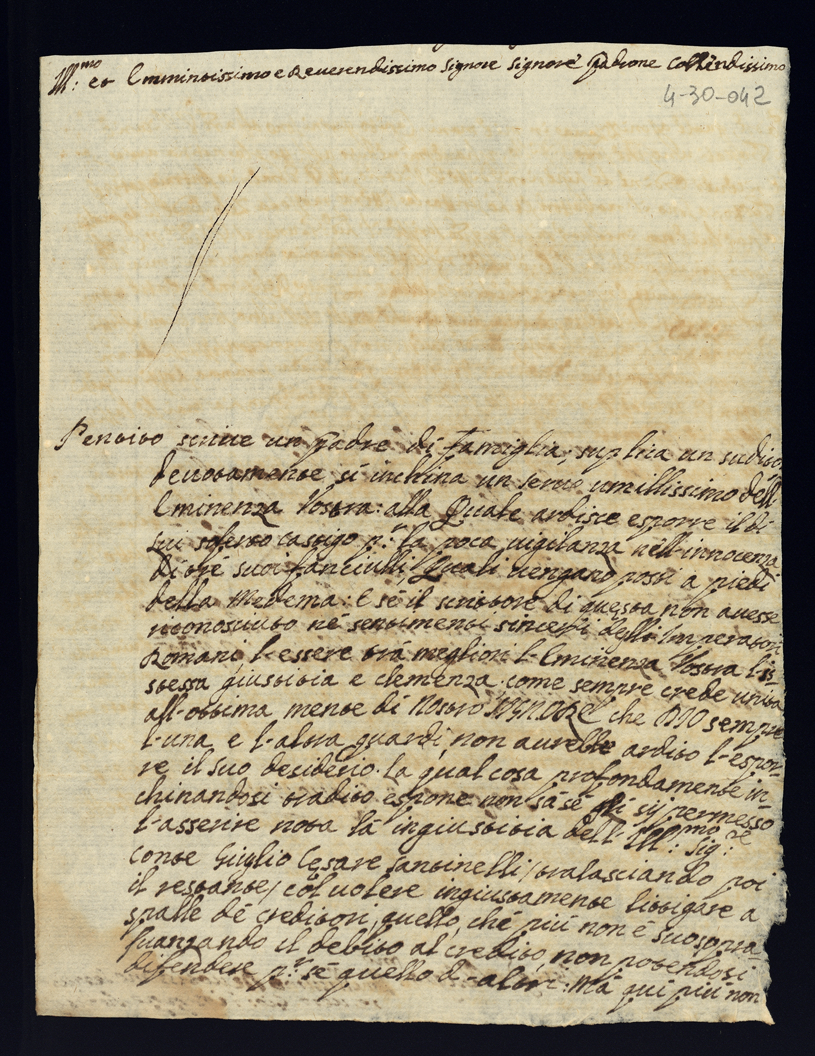 Ill:mo et Emminentissimo e Reverendissimo Signore Signore Padrone Collendissimo
4-30-042
Pentito scrive un Padre di Famiglia, suplica un sudito
devotamente si inchina un servo umillissimo dell
Eminenza Vostra: alla Quale ardisce esporre il di
lui soferto castigo p.r la poca vigilanza nell-innocenza
di tré suoi fanciulli, Quali vengano posti a piedi
della Medema: E sé il scrittore di questa non avesse
riconosciuto né sentimenti sinceri delli Imperatori
Romani l-essere trà megliori l-Eminenza Vostra l-is
stessa giustitia e clemenza come sempre crede unita
all-ottima mente di Nostro SIGNORE che DIO sempre
l-una e l-altra guardi, non avrebbe ardito l-espor-
re il suo desiderio. La qual cosa profondamente in-
chinandosi tradito espone non sà sé gli sij permesso
l-asserire nota la ingiustitia dell-Ill:mo Sig:re
Conte Giuglio Cesare Santinelli / tralasciando poi
il restante / col volere ingiustamente littigare a
spalle dé creditori, quello, ché più non é suo sopra-
vanzando il debito al credito, non potendosi
difendere p.r sé quello d-altri: Mà qui più non